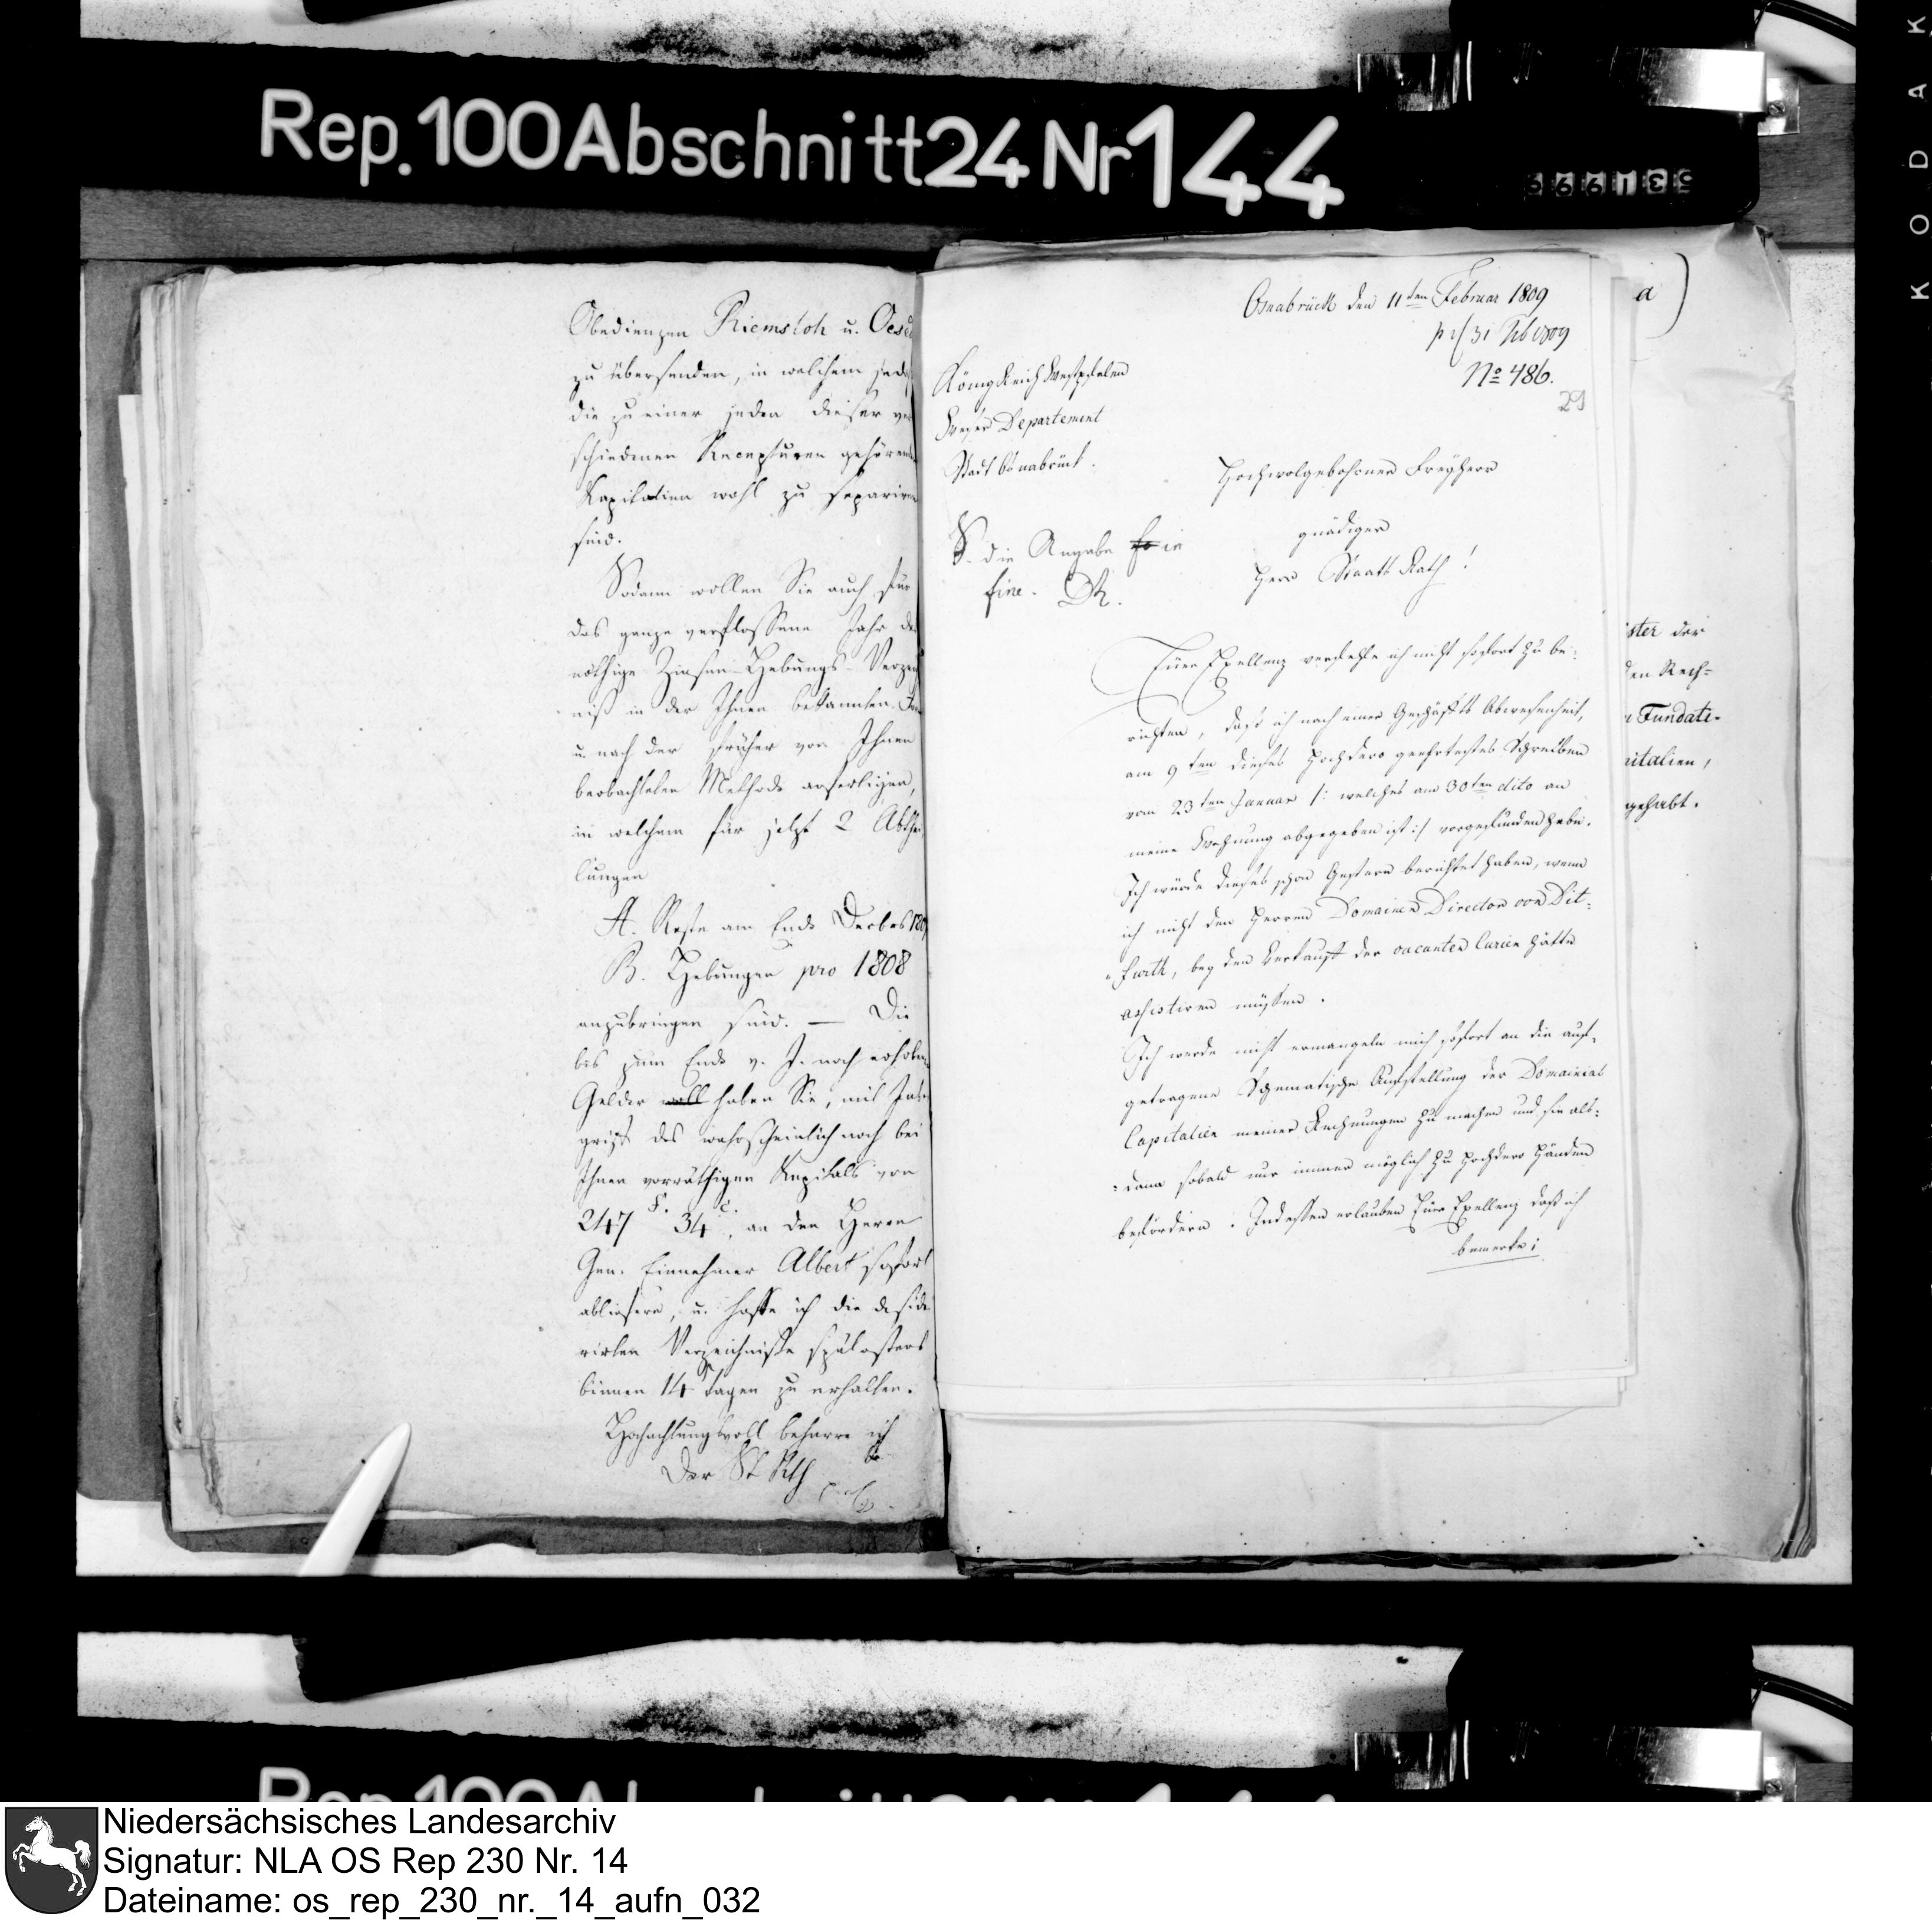 Rep.100Abschnitt24Nr144
KODAK
Obedienzen Riemsloh u. Oesed
zu übersenden, in welchem jedoch
die zu einer jeden dieser ver
schiedenen Recepturen gehörenden
Kapitalien wohl zu separiren
sind.
Sodann wollen Sie auch für
das ganze verflossene Jahr das
nöthige Zinsen-Hebungs-Verzeich
niß in der Ihnen bekannten Form
u. nach der früher von Ihnen
beobachteten Methode anfertigen,
in welchem für jetzt 2 Abthei
lungen
A. Reste am Ende Decbes 180
B. Hebungen pro 1808
anzubringen sind. — Die
bis zum Ende v. J. noch erhobenen
Gelder haben Sie, mit Inbe
griff des wahrscheinlich noch bei
Ihnen vorräthigen Kapitals von
247 f. 34 c., an den Herrn
Gen. Einnehmer Albert sofort
abliefern, u. hoffe ich die deside
rirten Verzeichniße spätestens
binnen 14 Tagen zu erhalten.
Hochachtungsvoll beharre ich
Der St Rth
Osnabrück den 11ten Februar 1809
No 486.
29
Königreich Westphalen
Weser Departement
Stadt Osnabrück.
S. die Angabe in
fine.
Hochwolgebohrner Freyherr
gnädiger
Herr Staats Rath!
Euer Exellenz verfehle ich nicht sofort zu be:
richten, daß ich nach einer Geschäfts Abwesenheit,
am 9ten dieses Hochdero geehrtestes Schreiben
vom 23ten Januar /: welches am 30ten dito an
meine Wohnung abgegeben ist :/ vorgefunden habe.
Ich würde dieses schon Gestern berichtet haben, wenn
ich nicht den Herren Domainen Director von Dit:
furth, bey den Verkauff der vacanten Curien hätte
assistiren müssen.
Ich werde nicht ermangeln mich sofort an die auf-
getragene Schematische Aufstellung der Domainial
Capitalien meiner Rechnungen zu machen und sie als:
dann sobald nur immer möglich zu Hochdero Händen
befördern. Indessen erlauben Euer Exellenz daß ich
bemerke;
a)
ister der
den Rech=
n Fundati-
pitalien,
gehabt.
Niedersächsisches Landesarchiv
Signatur: NLA OS Rep 230 Nr. 14
Dateiname: os_rep_230_nr._14_aufn_032